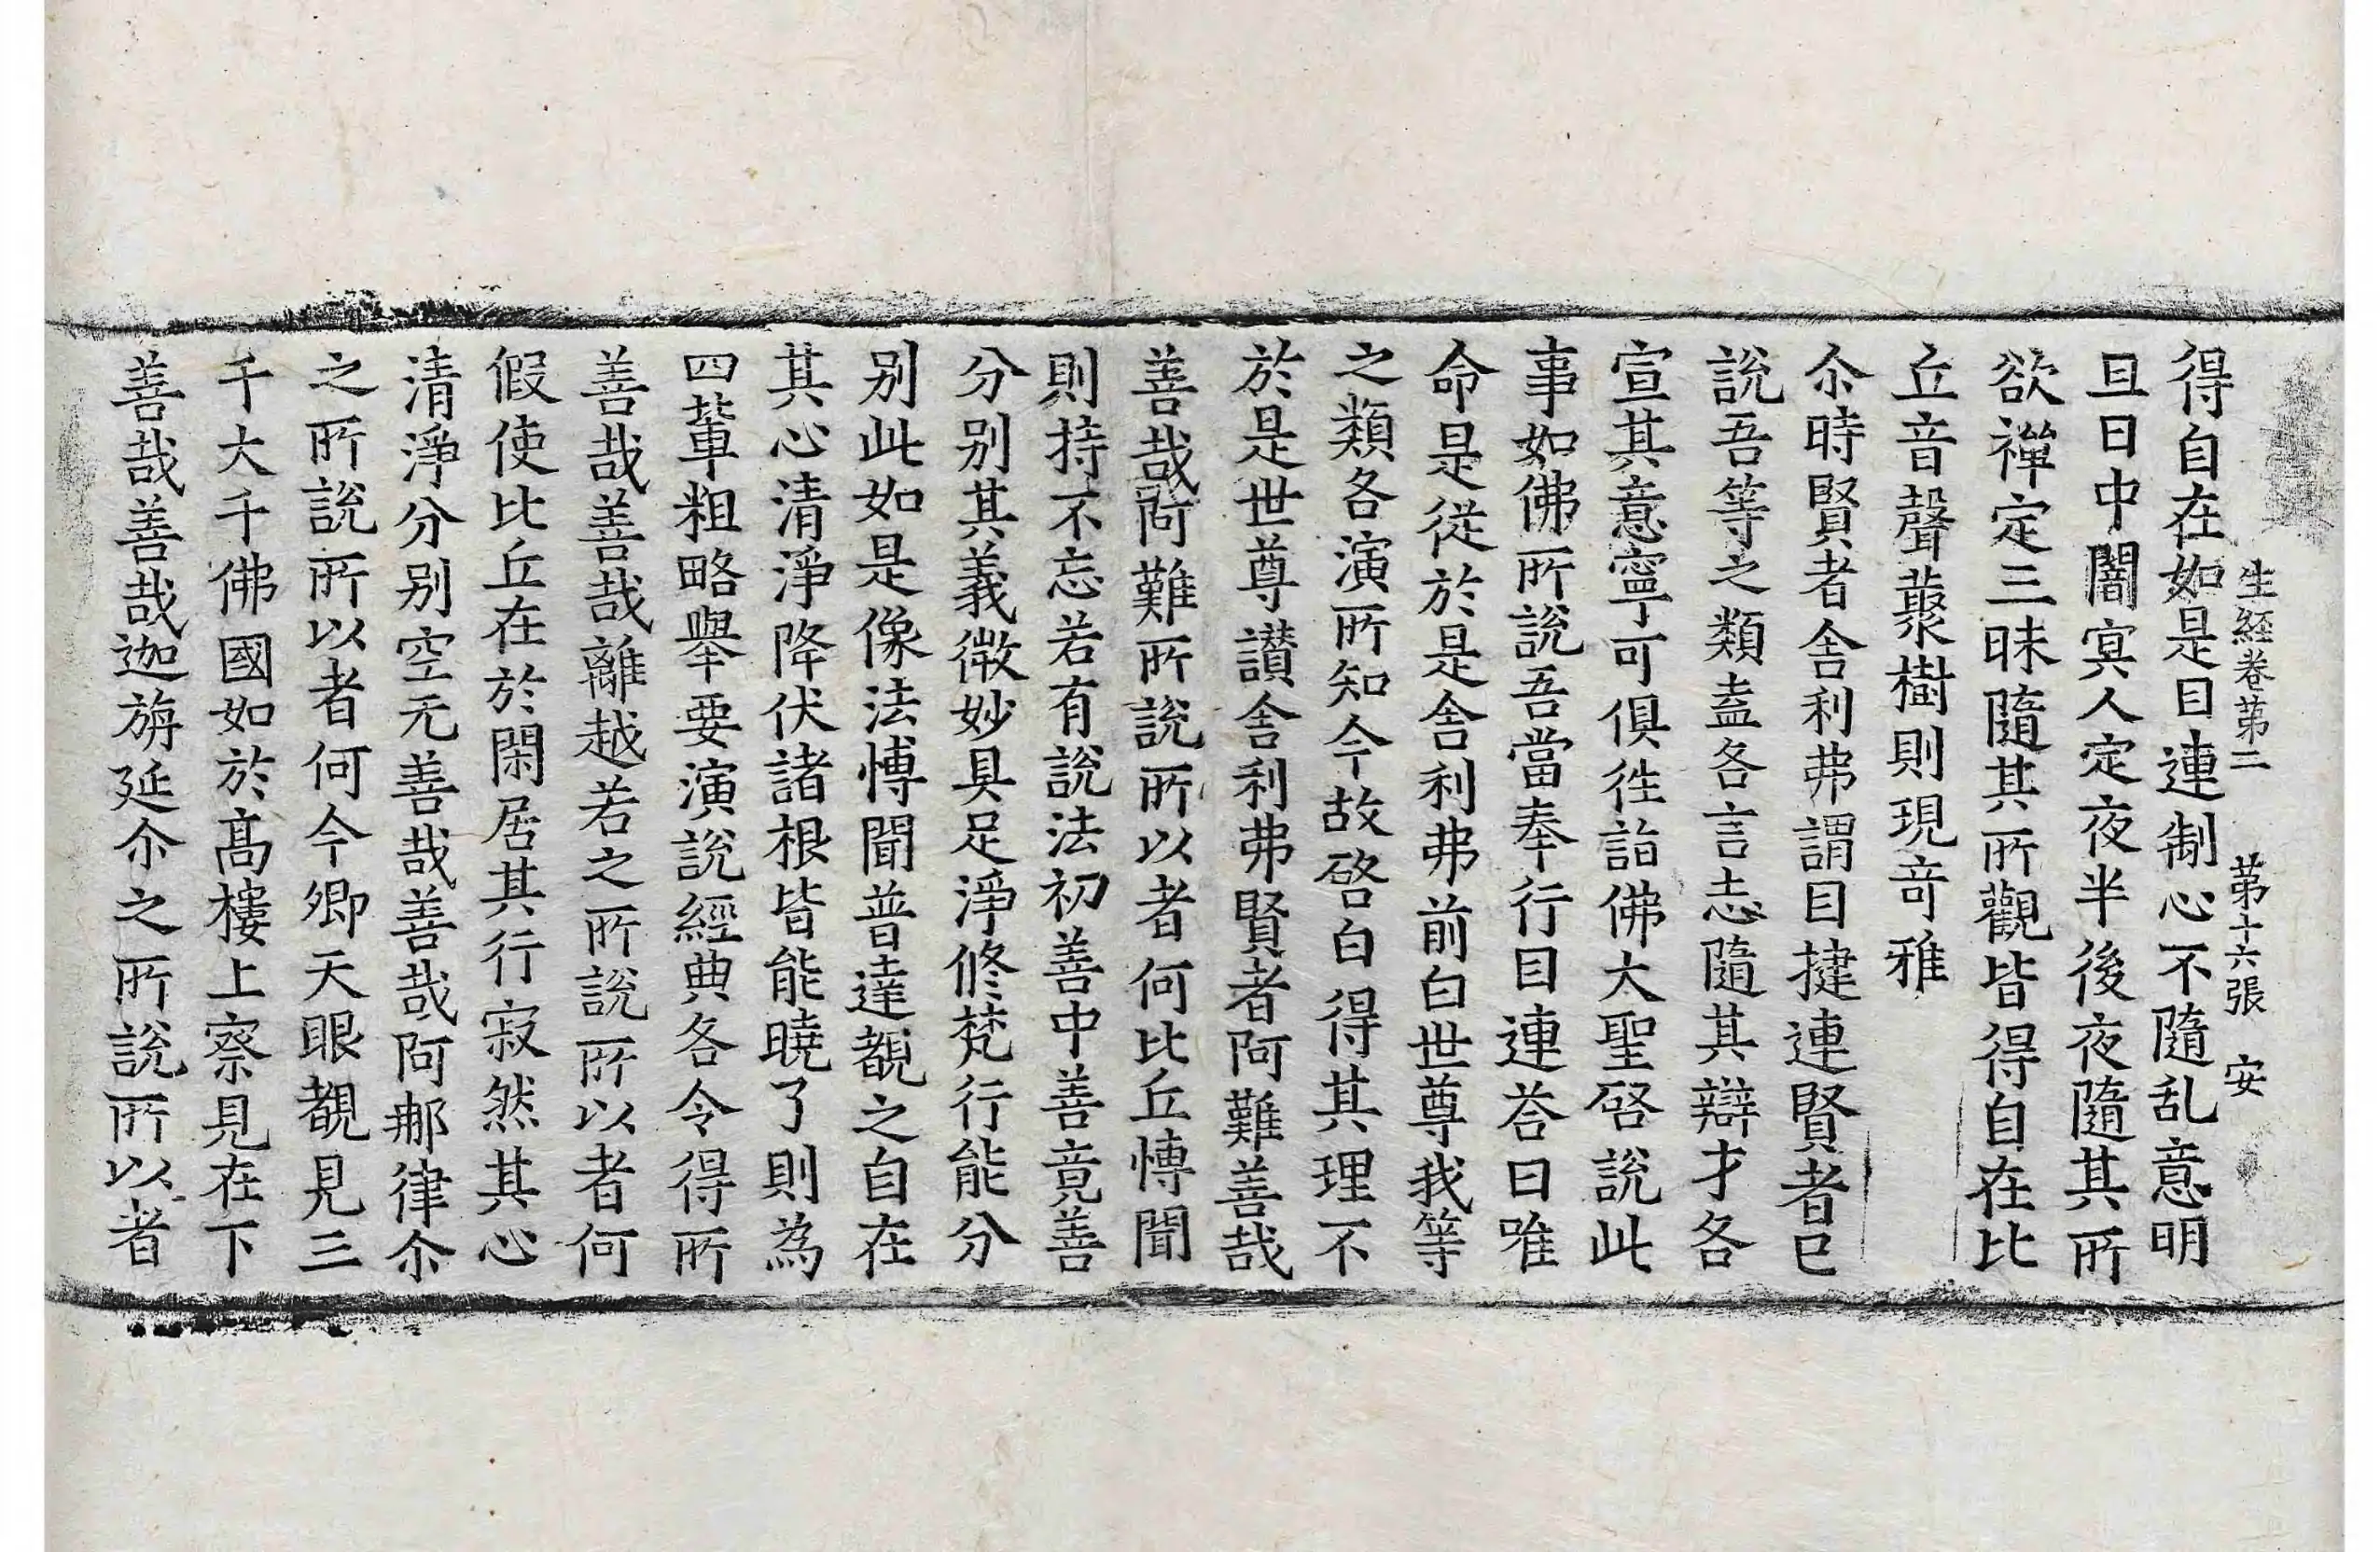 生經卷第二　第十六張　安
得自在如是目連制心不隨乱意明
旦日中闇冥人定夜半後夜隨其所
欲禪定三昧隨其所觀皆得自在比
丘音聲藂樹則現奇雅
尒時賢者舍利弗謂目揵連賢者已
說吾等之類盍各言志隨其辯才各
宣其意寧可俱往詣佛大聖啓說此
事如佛所說吾當奉行目連荅曰唯
命是從於是舍利弗前白世尊我等
之類各演所知今故啓白得其理不
於是世尊讃舍利弗賢者阿難善哉
善哉阿難所說所以者何比丘愽聞
則持不忘若有說法初善中善竟善
分別其義微妙具足淨修梵行能分
別此如是像法愽聞普達覩之自在
其心清淨降伏諸根皆能曉了則為
四輩粗略舉要演說經典各令得所
善哉善哉離越若之所說所以者何
假使比丘在於閑居其行寂然其心
清淨分別空无善哉善哉阿那律尒
之所說所以者何今卿天眼覩見三
千大千佛國如於髙樓上察見在下
善哉善哉迦旃延尒之所說所以者